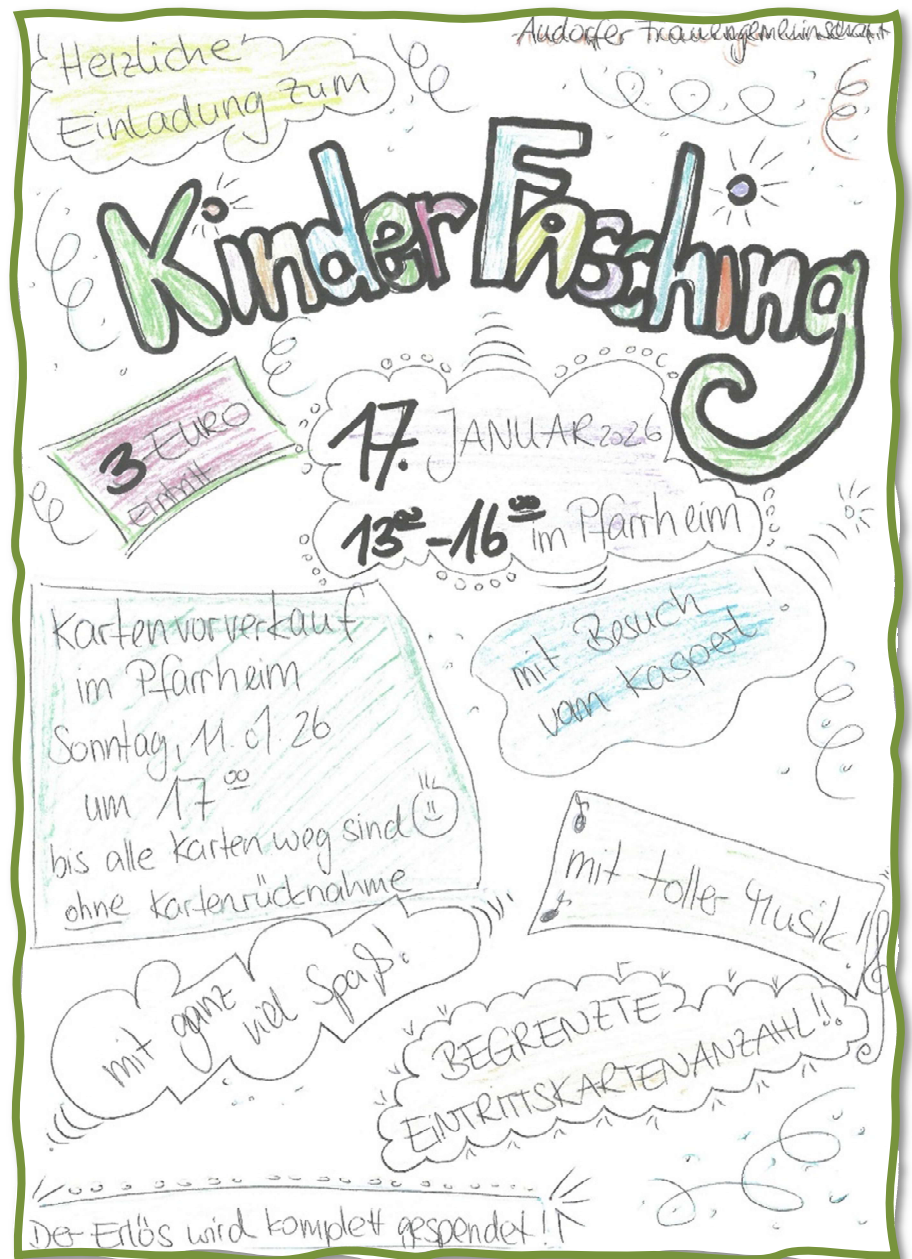 Audorfer Frauengemeinschaft
Herzliche
Einladung zum
KinderFasching
3 EURO
Eintritt
17. JANUAR 2026
13⁰⁰-16⁰⁰ im Pfarrheim
Kartenvorverkauf
im Pfarrheim
Sonntag, 11.01.26
um 17⁰⁰
bis alle Karten weg sind
ohne Kartenrücknahme
mit Besuch
vom Kasperl!
mit toller Musik!
mit ganz
viel Spaß!
BEGRENZTE
EINTRITTSKARTENANZAHL!!
Der Erlös wird komplett gespendet!!